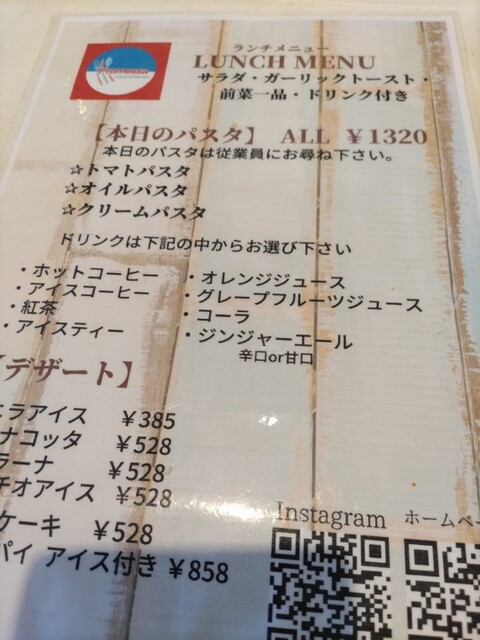 ランチメニュー
LUNCH MENU
サラダ・ガーリックトースト・
前菜一品・ドリンク付き
【本日のパスタ】 ALL ￥1320
本日のパスタは従業員にお尋ね下さい。
☆トマトパスタ
☆オイルパスタ
☆クリームパスタ
ドリンクは下記の中からお選び下さい
・ホットコーヒー
・アイスコーヒー
・紅茶
・アイスティー
・オレンジジュース
・グレープフルーツジュース
・コーラ
・ジンジャーエール
辛口or甘口
【デザート】
ニラアイス ￥385
ナコッタ ￥528
ラーナ ￥528
チオアイス ￥528
ケーキ ￥528
パイ アイス付き ￥858
Instagram ホームペー